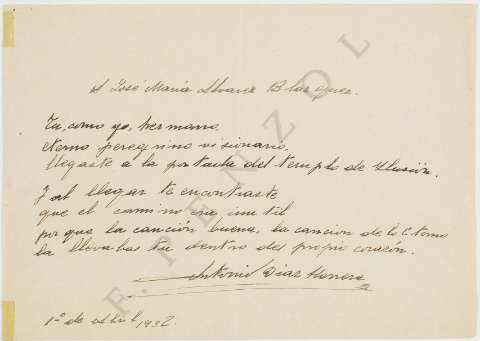 A José María Alvarez Blázquez.
Tu, como yo, hermano,
eterno peregrino visionario.
llegaste a la portada del templo de Ilusión.
Y al llegar te encontraste
que el camino era inutil
porque la canción buena, la cancion de lo Eterno
la llevabas tu dentro del propio corazón.
Antonio Díaz Herrera
1º de abril 1932.
F. PENZOL